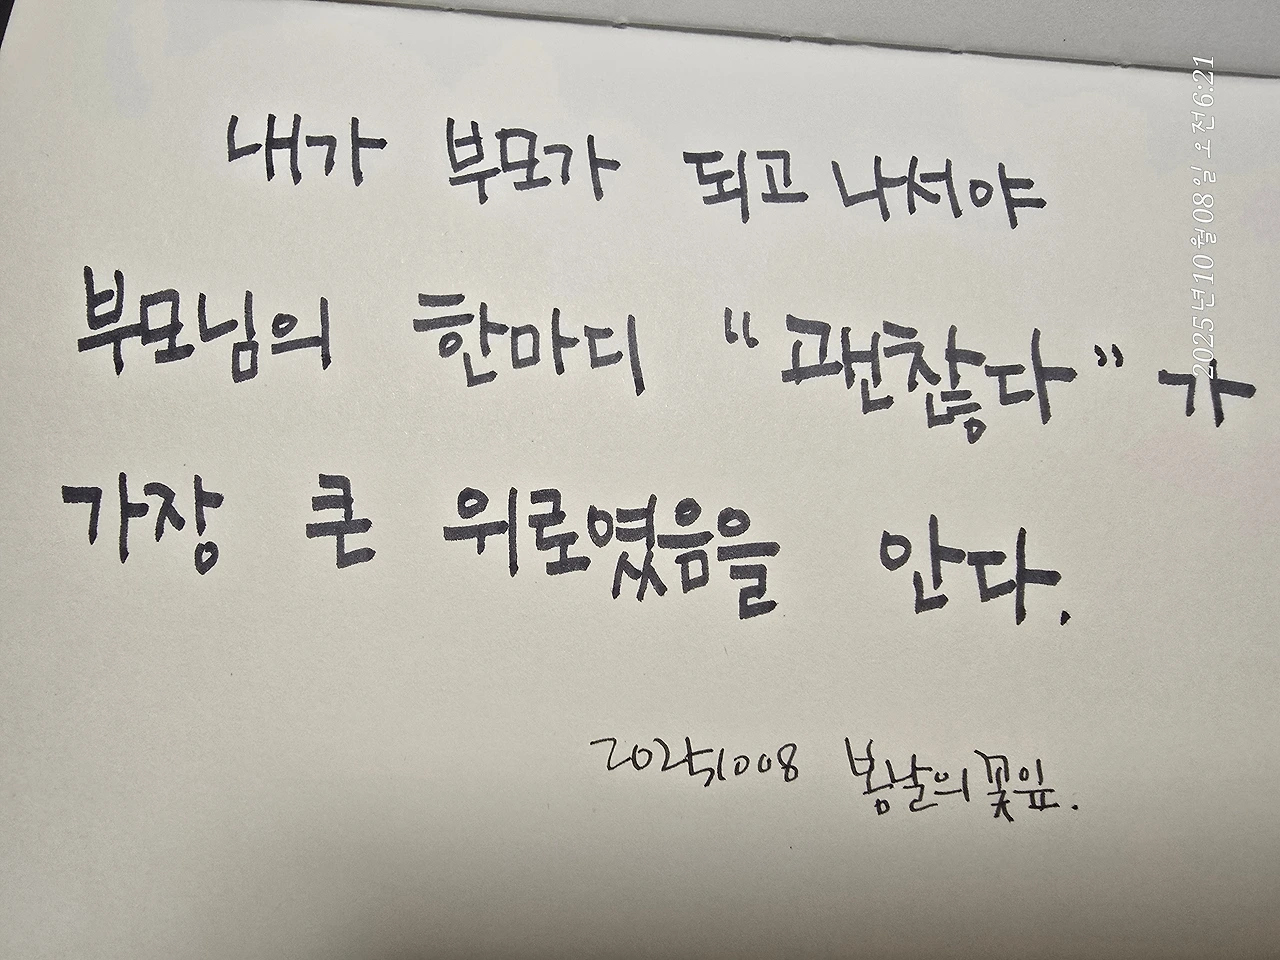 내가 부모가 되고 나서야
부모님의 한마디 "괜찮다"가
가장 큰 위로였음을 안다.
20251008 봄날의꽃잎.
2025년10월08일 오전6:21